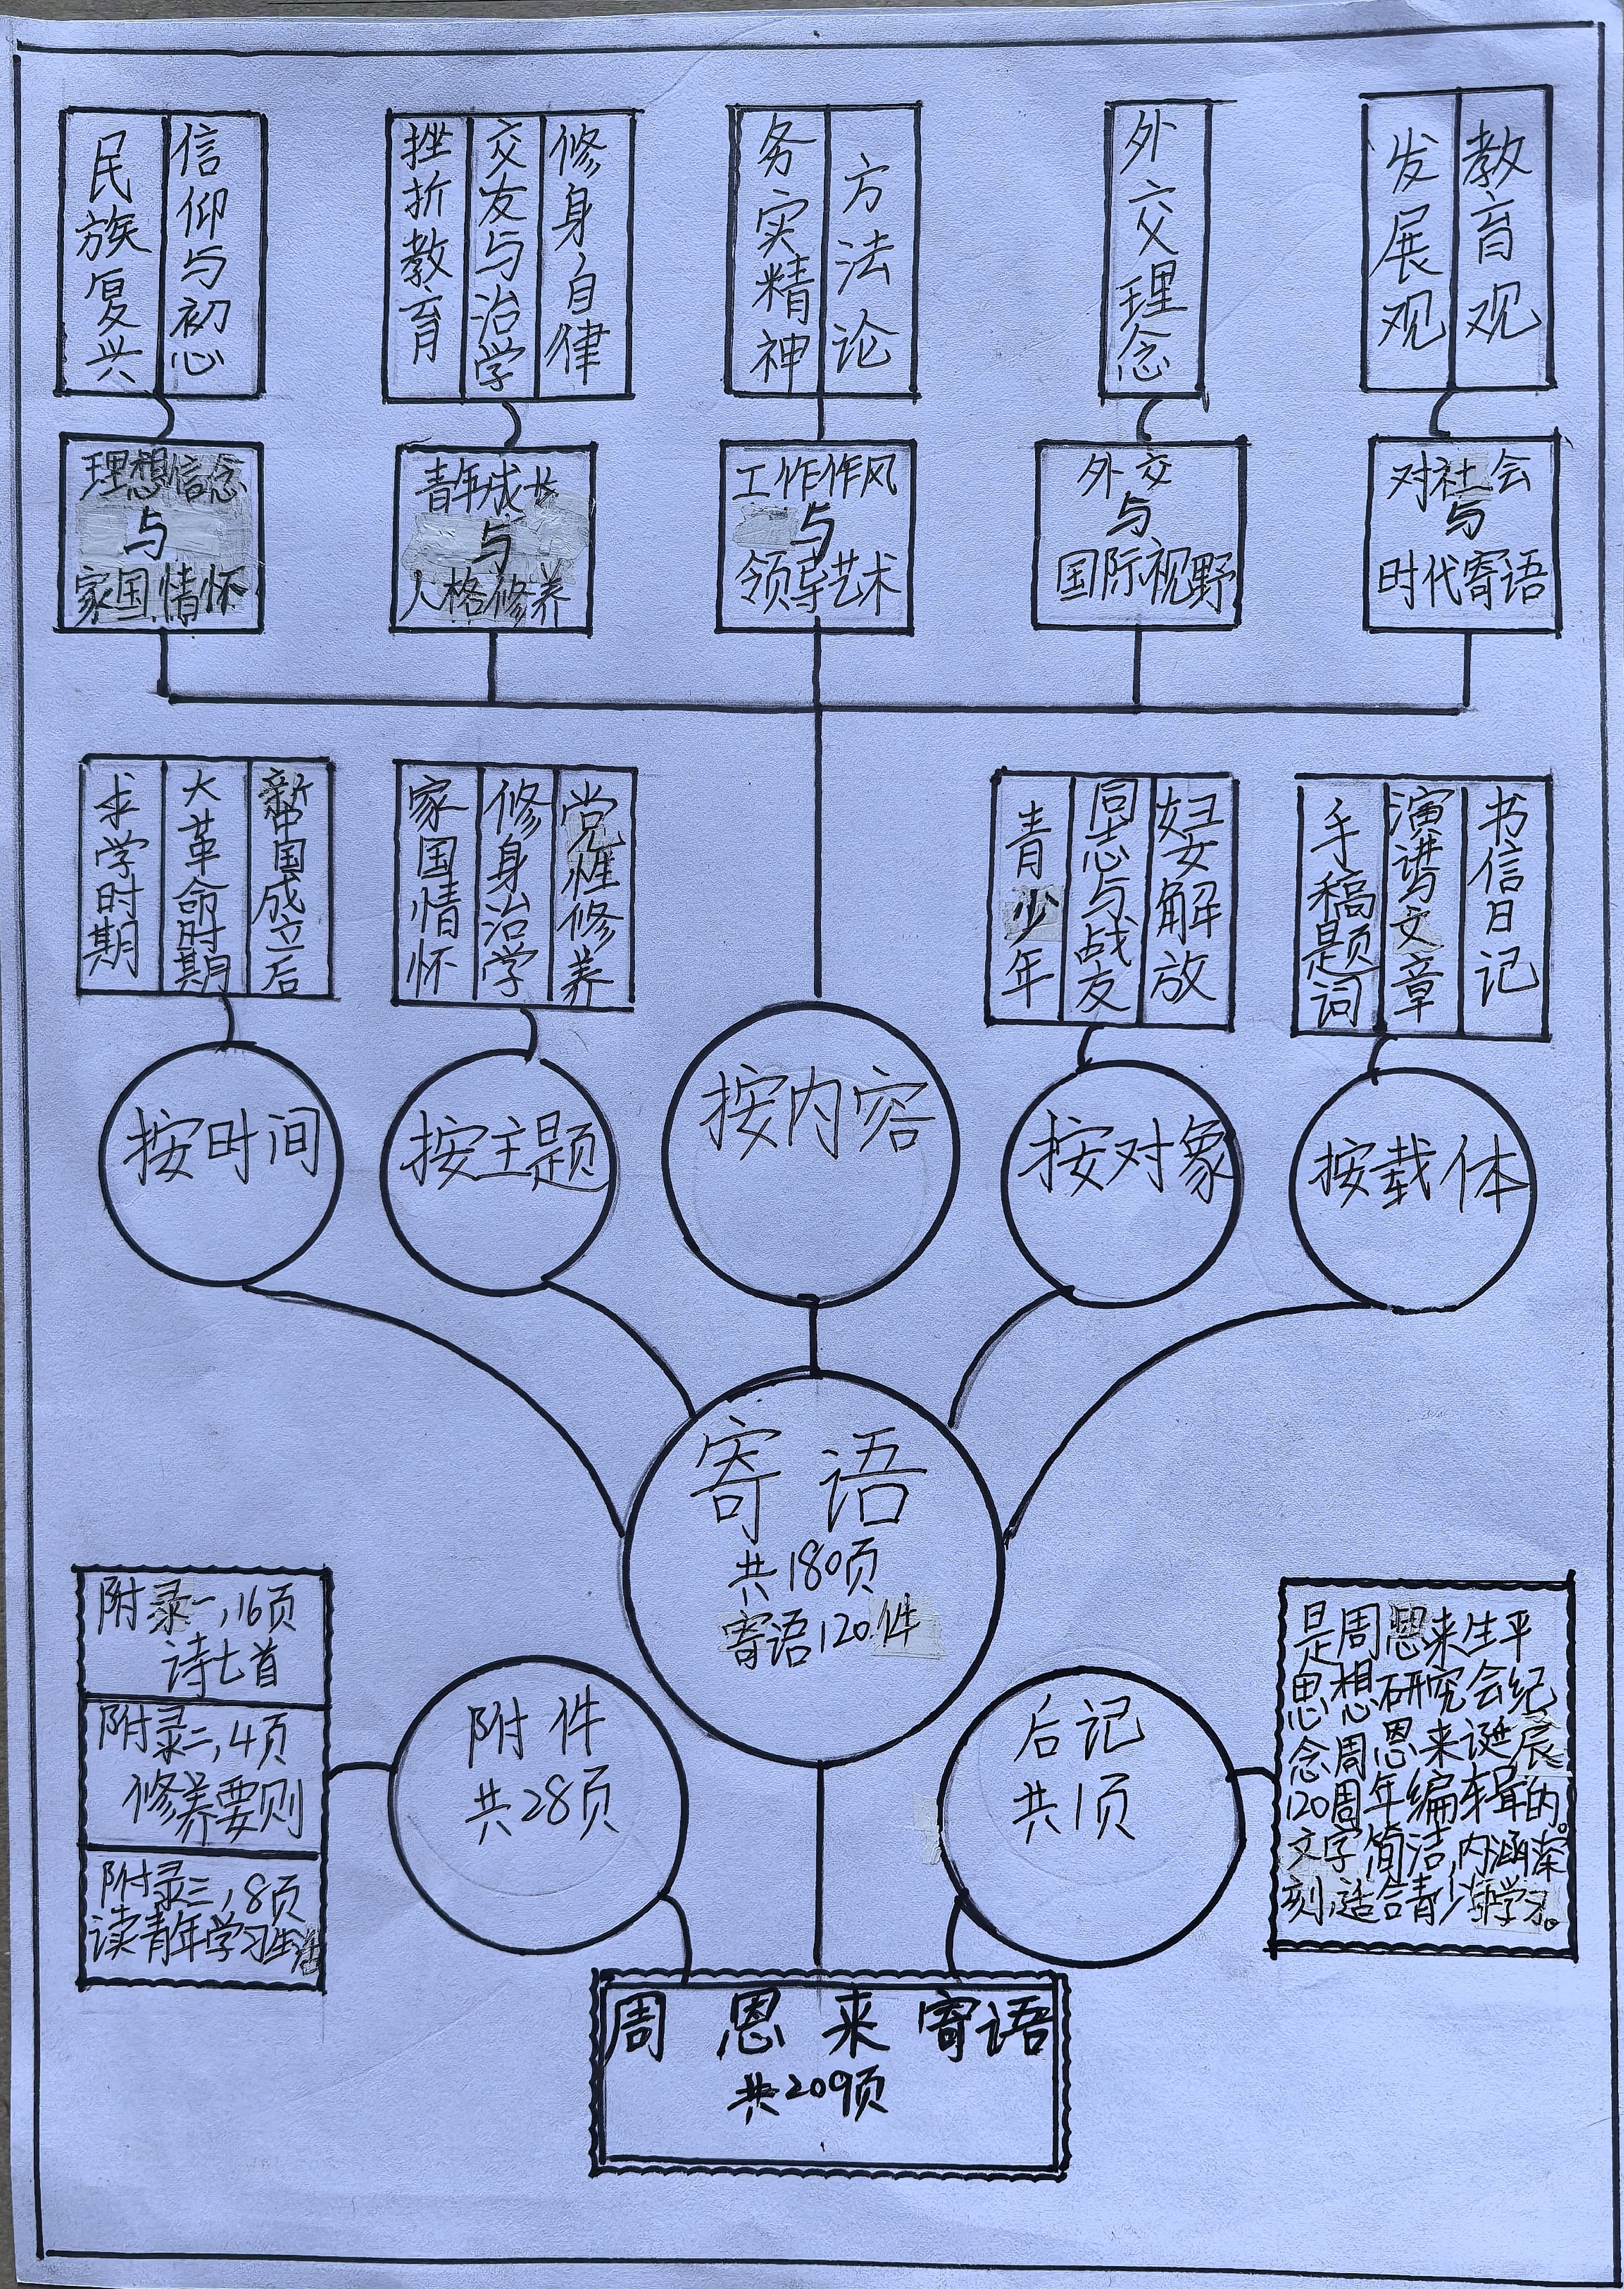 民族复兴
信仰与初心
挫折教育
交友与治学
修身自律
务实精神
方法论
外交理念
发展观
教育观
理想信念
与
家国情怀
青年成长
与
人格修养
工作作风
与
领导艺术
外交
与
国际视野
对社会
与
时代寄语
求学时期
大革命时期
新中国成立后
家国情怀
修身治学
党性修养
青少年
同志与战友
妇女解放
手稿题词
演讲与文章
书信日记
按时间
按主题
按内容
按对象
按载体
寄语
共180页
寄语120件
附录一,16页
诗七首
附录二,4页
修养要则
附录三,8页
读青年学习生活
附件
共28页
后记
共1页
是周恩来生平
思想研究会纪
念周恩来诞辰
120周年编辑的。
文字简洁,内涵深
刻,适合青少年学习。
周恩来寄语
共209页